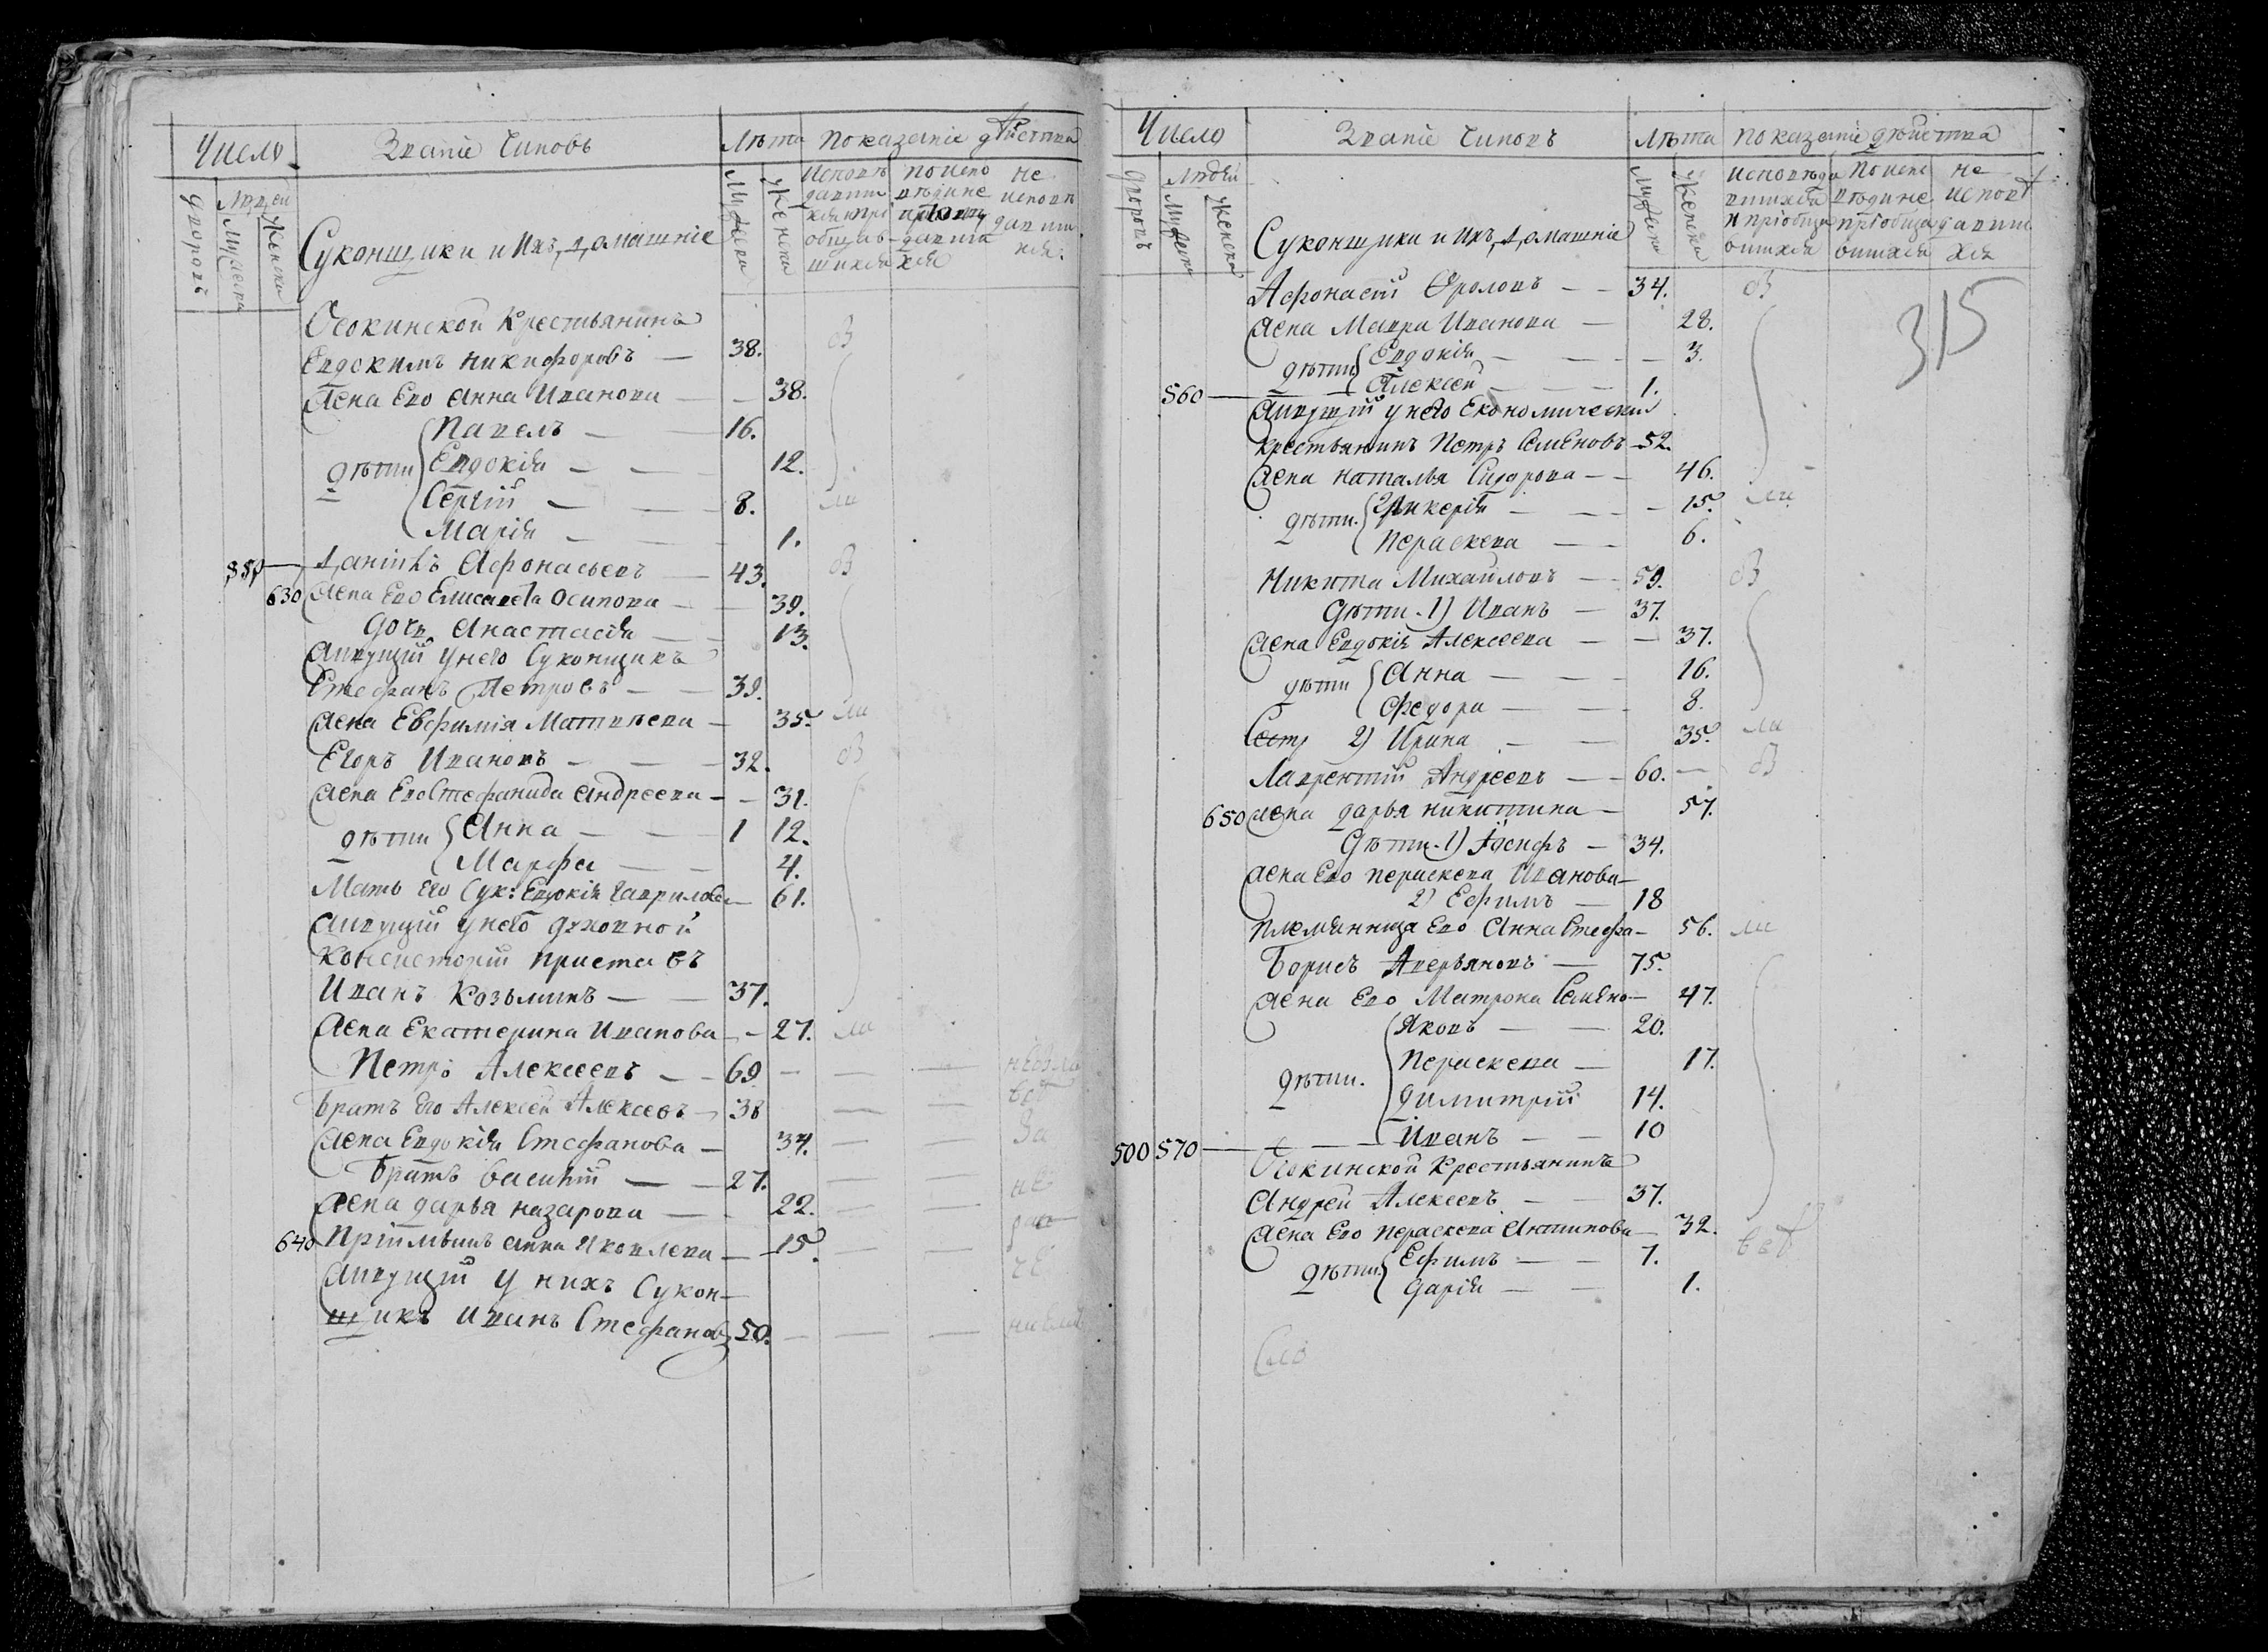 Число
Званіе Чиновъ
Лѣта
Показаніе дѣйства
дворовъ
Людей
Мужеска
Женска
Мужеска
Женска
Исповѣ
давши
хся и прі
общав
шихся
По испо
вѣди не
не
исповѣ
давши
хся
Суконщики и ихъ домашніе
Осокинской Крестьянинъ
Евдокимъ Никифоровъ — 38.
Жена Его Анна Иванова — 38.
Павелъ — 16.
дѣти Евдокія — 12.
Сергій — 8.
Марія — 1.
550 Даніилъ Афонасьевъ — 43.
630 Жена Его Елисавета Осипова — 39.
дочь Анастасія — 13.
Живущій у него Суконщикъ
Стефанъ Петровъ — 39.
Жена Евфимія Матвѣева — 35.
Егоръ Ивановъ — 32.
Жена Его Стефанида Андреева — 31.
дѣти Анна — 1 12.
Марфа — 4.
Мать его Сук: Евдокія Гаврилова — 61.
Живущій у него духовной
Консисторіи приставъ
Иванъ Козьминъ — 37.
Жена Екатерина Иванова — 27.
Петръ Алексеевъ — 69
братъ Его Алексей Алексеевъ — 38
Жена Евдокія Стефанова — 34.
Братъ Василій — 27.
Жена дарья назарова — 22.
640 Пріймышъ анна Яковлева — 15.
Живущій у нихъ Сукон-
щикъ Иванъ Стефановъ 50.
Число
Званіе Чиновъ
Лѣта
Показаніе дѣйства
дворовъ
Людей
Мужеска
Женска
Мужеска
Женска
исповѣда
вшихся
и пріобща
вшихся
По испо
вѣди не
пріобща
вшихся
не
исповѣ
давши
хся
Суконщики и ихъ домашніе
315
Афонасій Фроловъ — 34.
Жена Мавра Иванова — 28.
дѣти Евдокія — 3.
560 Алексей — 1.
Живущій у него Економическій
крестьянинъ Петръ Семеновъ — 52.
Жена наталья Сидорова — 46.
дѣти. Гликерія — 15.
Параскева — 6.
Никита Михайловъ — 59.
дѣти. 1) Иванъ — 37.
Жена Евдокія Алексеева — 37.
дѣти Анна — 16.
Федора — 8.
2) Ирина — 35.
Лаврентій Андреевъ — 60.
650 Жена дарья никитина — 57.
дѣти. 1) Іосифъ — 34.
Жена Его параскева Иванова —
2) Ефимъ — 18
племянница Его Анна Стефа — 56.
Борисъ Аверьяновъ — 75.
Жена Его Матрона Семено — 47.
Яковъ — 20.
Параскева — 17.
дѣти. димитрій 14.
500 570 Иванъ — 10
Осокинской Крестьянинъ
Андрей Алексеевъ — 37.
Жена Его параскева Антипова — 32.
дѣти Ефимъ — 7.
дарія — 1.